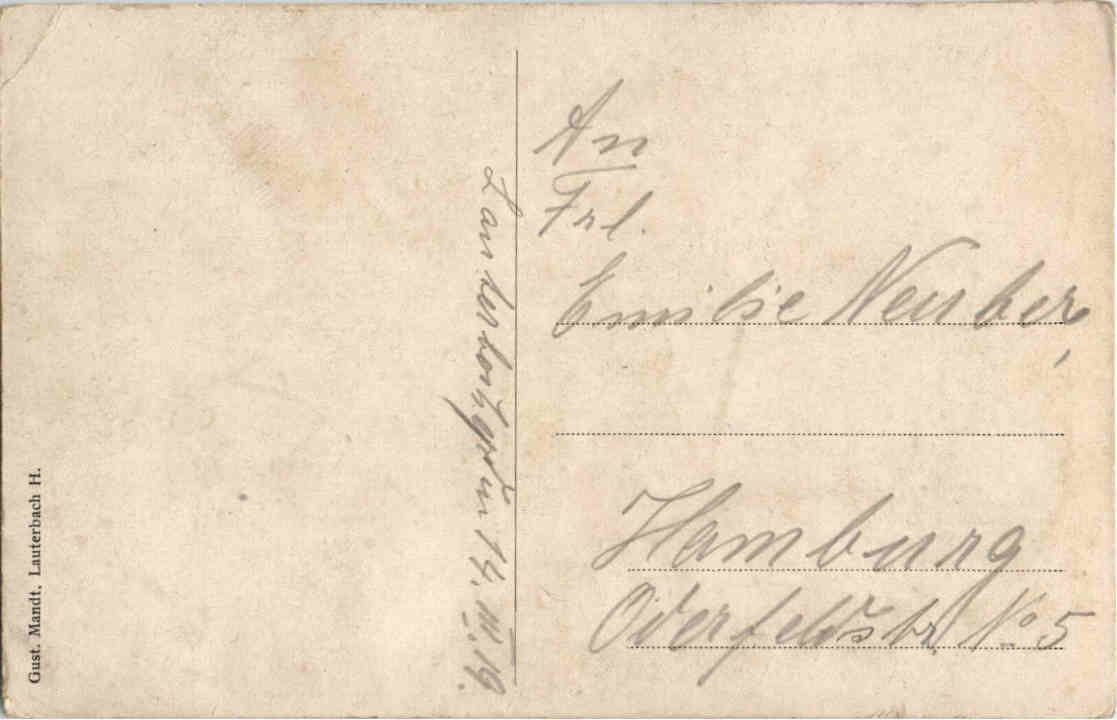 Gust. Mandt, Lauterbach H.
Lauterbach, den 14. III. 19.
An
Frl.
Emilie Neuber,
Hamburg
Oderfeldstr. No 5